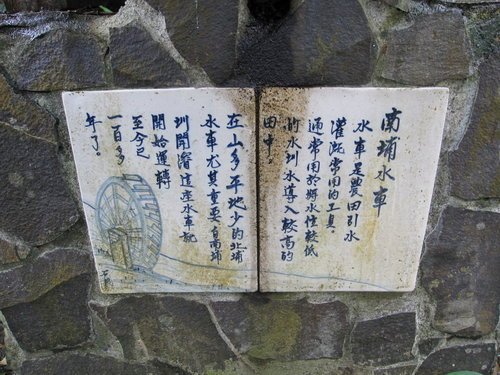 南埔水車
水車是農田引水
灌溉常用的工具。
通常用於將水位較低
的水圳水導入較高的
田中。
在山多平地少的北埔
水車尤其重要自南埔
圳開濬這座水車就
開始運轉
至今已
一百多
年了。